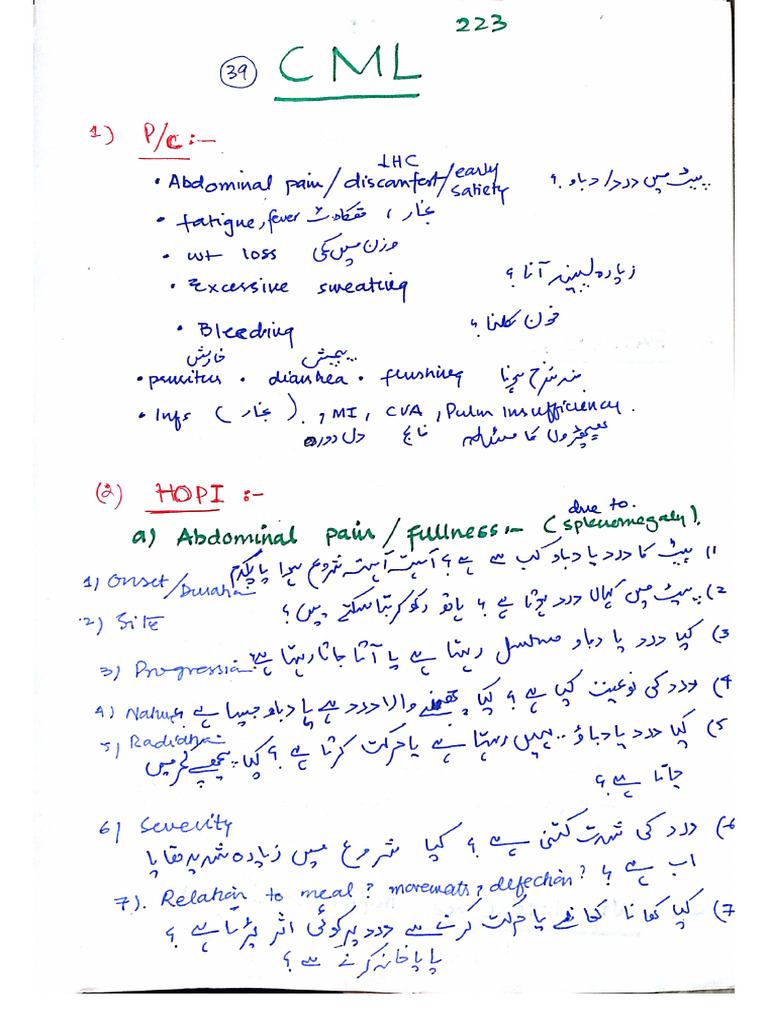 223
39 CML
1) P/C :-
LHC
• Abdominal pain/discomfort/early satiety پیٹ میں درد/دباو ؟
• fatigue, fever تھکاوٹ ، بخار
• wt loss وزن میں کمی
• Excessive sweating زیادہ پسینہ آنا ؟
• Bleeding خون نکلنا ؟
خارش پیچش
• pruritus • diarrhea • flushing منہ سرخ ہونا
• Infs (بخار) , MI, CVA, Pulm insufficiency.
دل دورہ فالج پھیپھڑوں کا مسئلہ
(2) HOPI :-
due to
a) Abdominal pain/fullness:- (splenomegaly).
1) Onset/Duration 1) پیٹ کا درد یا دباو کب سے ہے ؟ آہستہ آہستہ شروع ہوا یا یکدم
2) Site 2) پیٹ میں کہاں درد ہوتا ہے ؟ ہاتھ رکھ کر بتا سکتے ہیں ؟
3) Progression 3) کیا درد یا دباو مسلسل رہتا ہے یا آتا جاتا رہتا ہے
4) Nature 4) درد کی نوعیت کیا ہے ؟ کیا چبھنے والا درد ہے یا دباو جیسا ہے ؟
5) Radiation 5) کیا درد یا دباؤ یہیں رہتا ہے یا حرکت کرتا ہے ؟ کیا پیچھے کمر میں
جاتا ہے ؟
6) Severity 6) درد کی شدت کتنی ہے ؟ کیا شروع میں زیادہ شدید تھا یا
اب ہے ؟
7). Relation to meal? movements, defection?
7) کیا کھانا کھانے یا حرکت کرنے سے درد پر کوئی اثر پڑتا ہے ؟
یا پاخانہ کرنے سے ؟